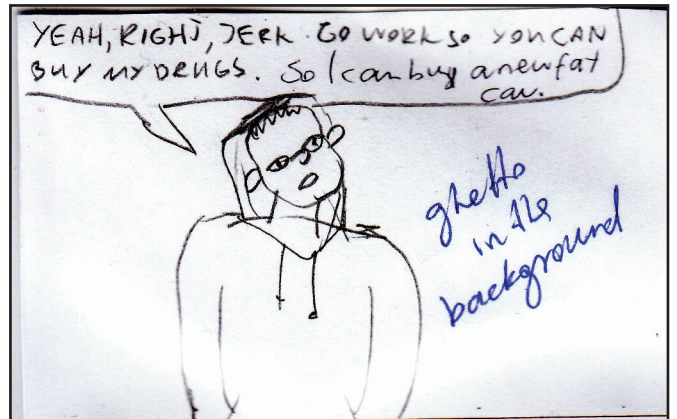 YEAH, RIGHT, JERK. GO WORK SO YOU CAN
BUY MY DRUGS. So I can buy a new fat
car.
ghetto
in the
background